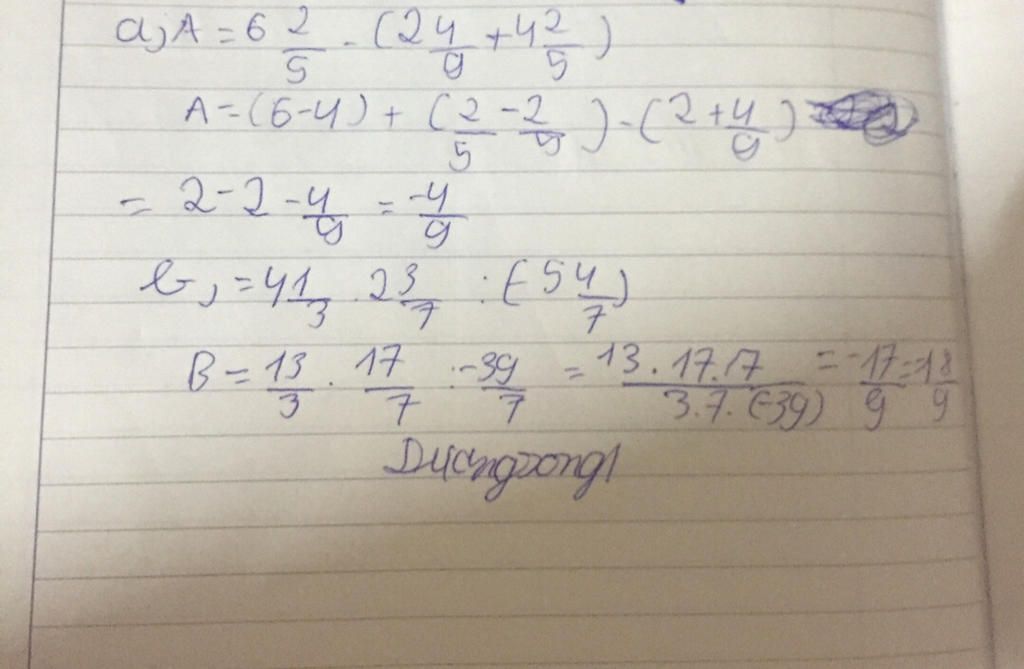 a, A = 6 2/5 - (2 4/9 + 4 2/5)
A = (6-4) + (2/5 - 2/5) - (2 + 4/9)
= 2 - 2 - 4/9 = -4/9
b, = 4 1/3 . 2 3/7 : (-5 4/7)
B = 13/3 . 17/7 : -39/7 = 13.17.17/3.7.(-39) = -17/9 = -18/9